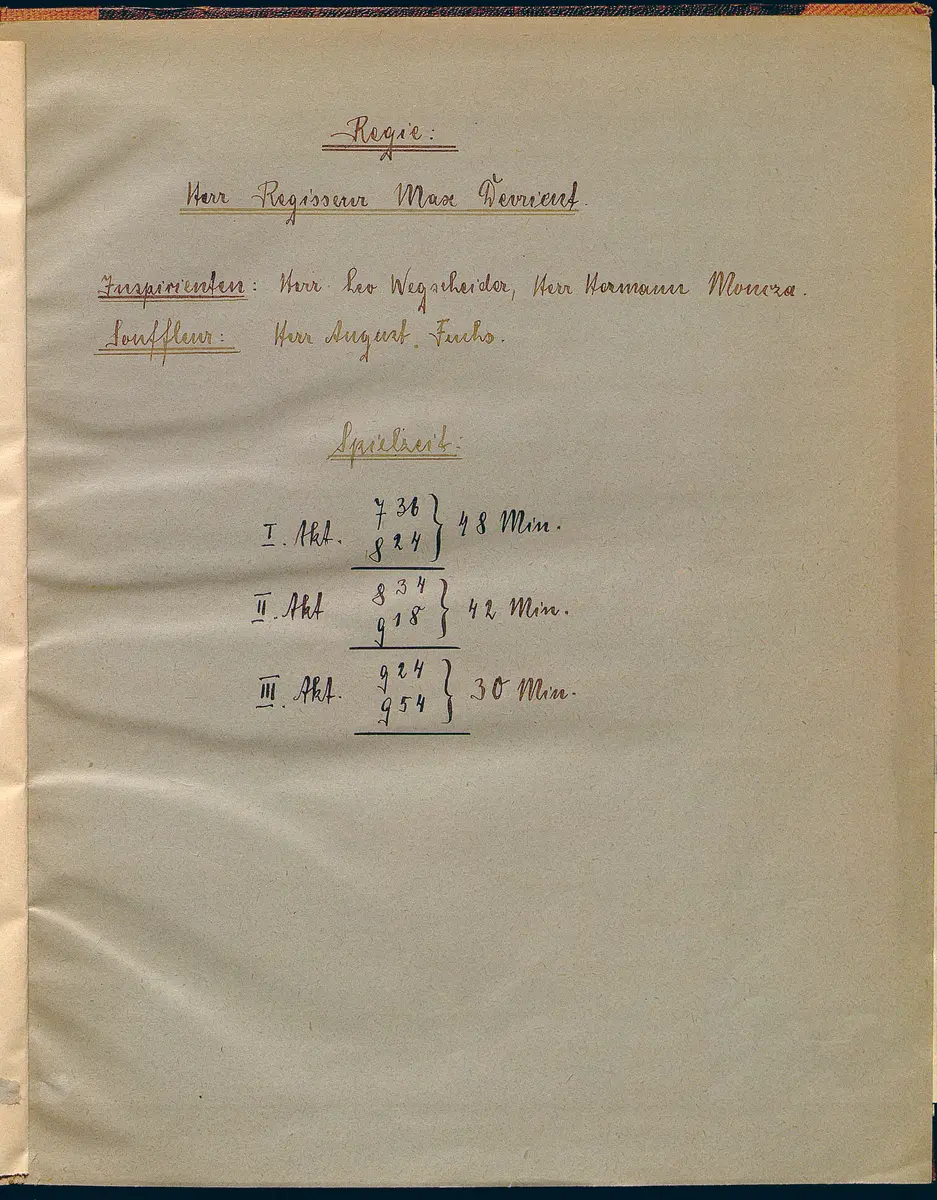 Regie:
Herr Regisseur Max Devrient.
Inspizienten: Herr Leo Wegscheider, Herr Hermann Moncza.
Souffleur: Herr August Fuchs.
Spielzeit:
I. Akt. 7 36 } 48 Min.
8 24
II. Akt 8 34 } 42 Min.
9 18
III. Akt. 9 24 } 30 Min.
9 54